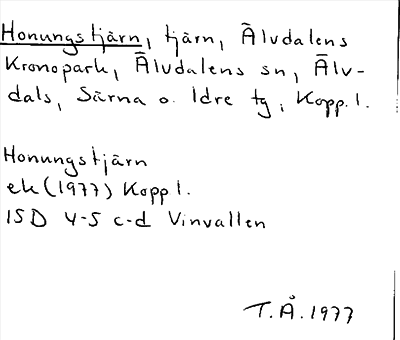 Honungstjärn, tjärn, Älvdalens
Kronopark, Älvdalens sn, Älv-
dals, Särna o. Idre tg, Kopp.l.
Honungstjärn
ek (1977) Kopp l.
15D 4-5 c-d Vinvallen
T.Å. 1977